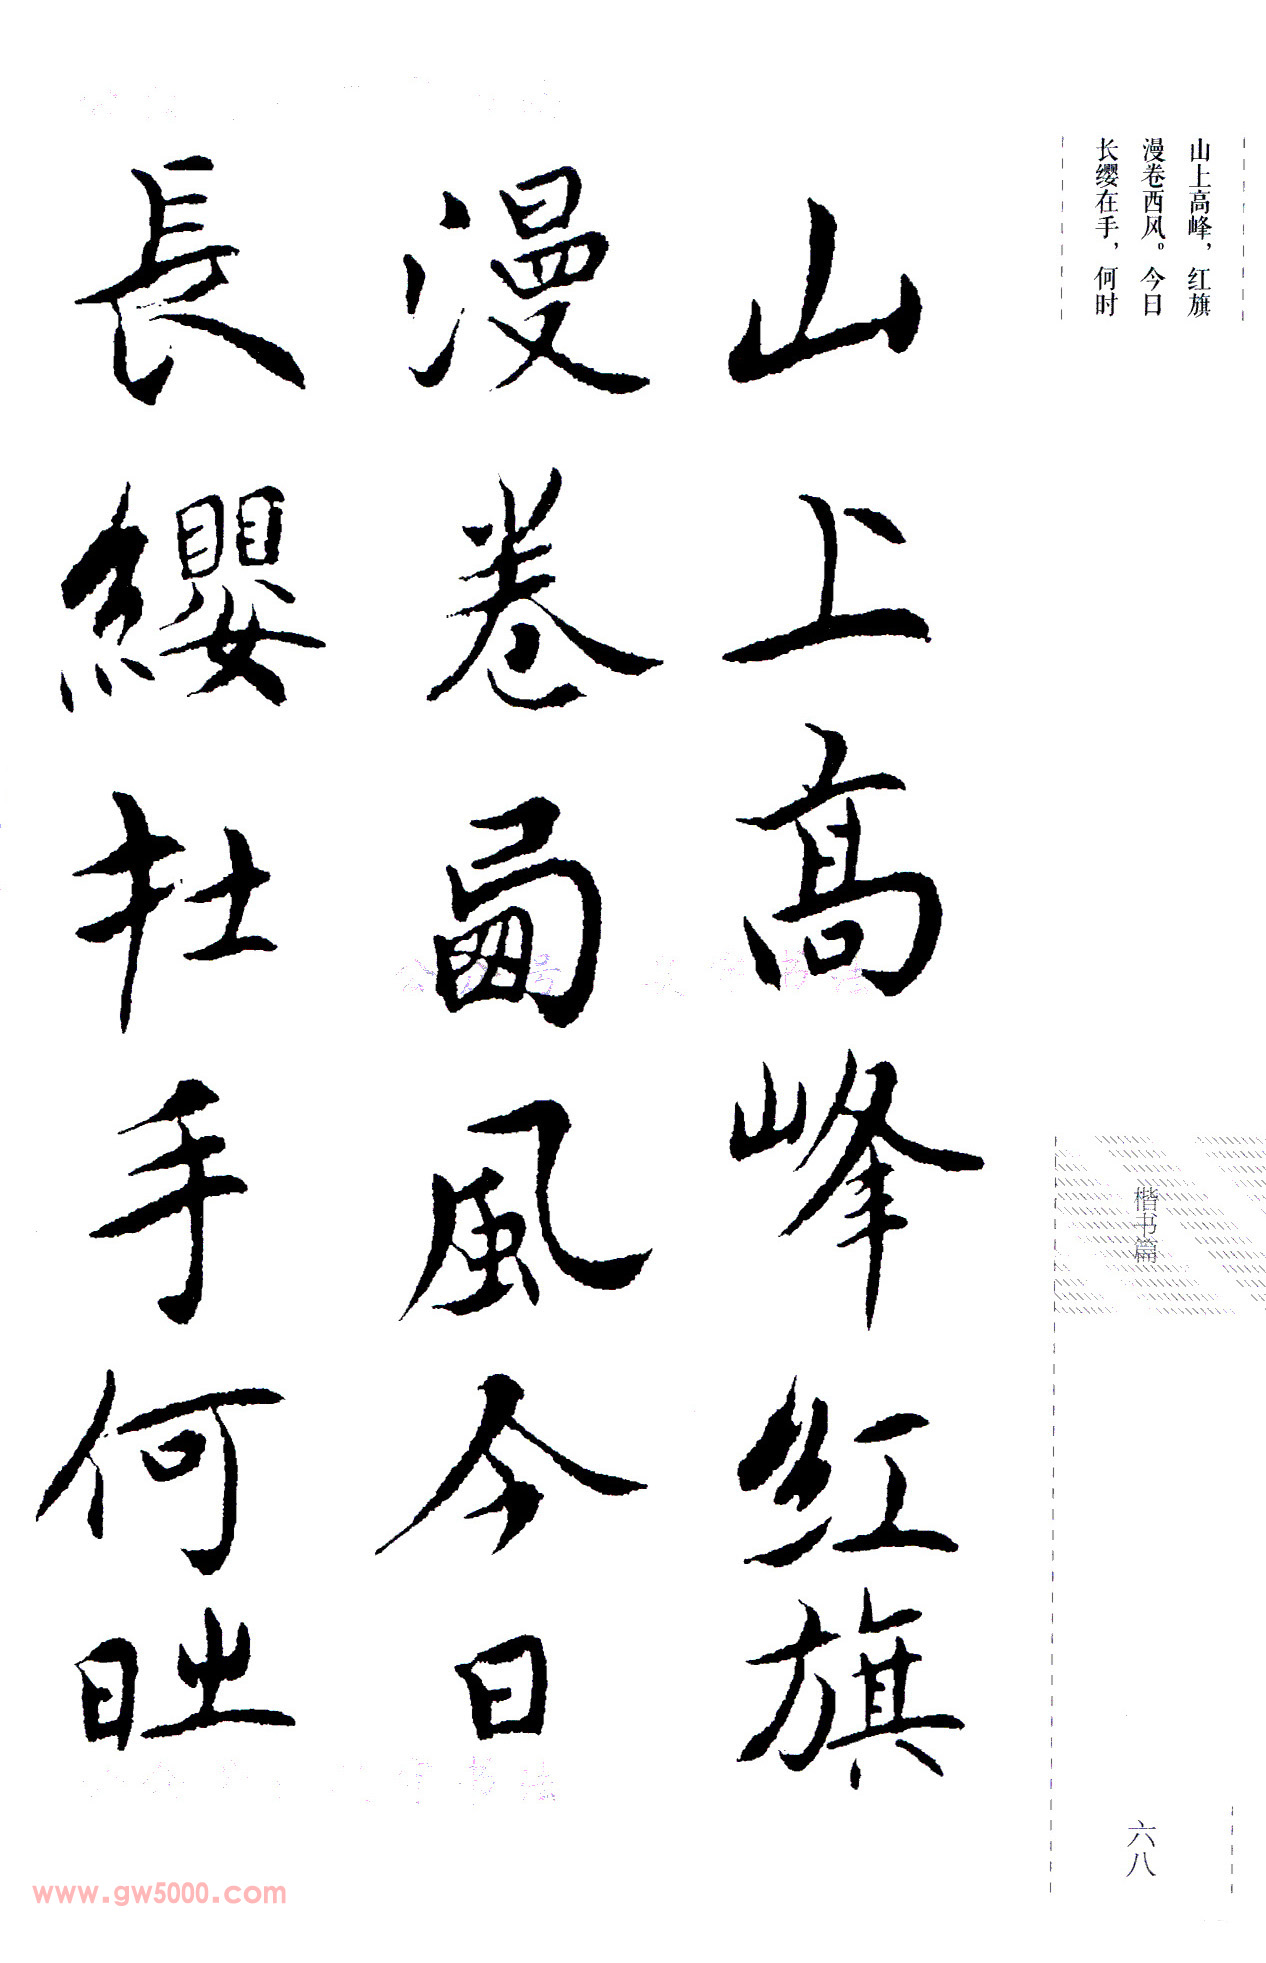 山上高峰，红旗
漫卷西风。今日
长缨在手，何时
山上高峰红旗
漫卷西風今日
長纓在手何时
楷书篇
六八
www.gw5000.com